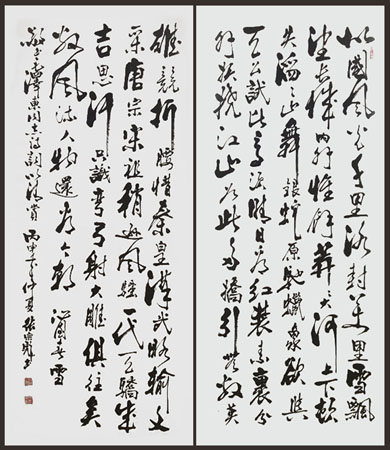 北國風光千里冰封萬里雪飄
望長城內外惟餘莽莽大河上下頓
失滔滔山舞銀蛇原馳蠟象欲與
天公試比高須晴日看紅裝素裹分
外妖嬈江山如此多嬌引無數英
雄競折腰惜秦皇漢武略輸文
采唐宗宋祖稍遜風騷一代天驕成
吉思汗只識彎弓射大雕俱往矣
數風流人物還看今朝 沁園春雪
澤東同志詩詞以 賞 丙申 仲夏 張 書